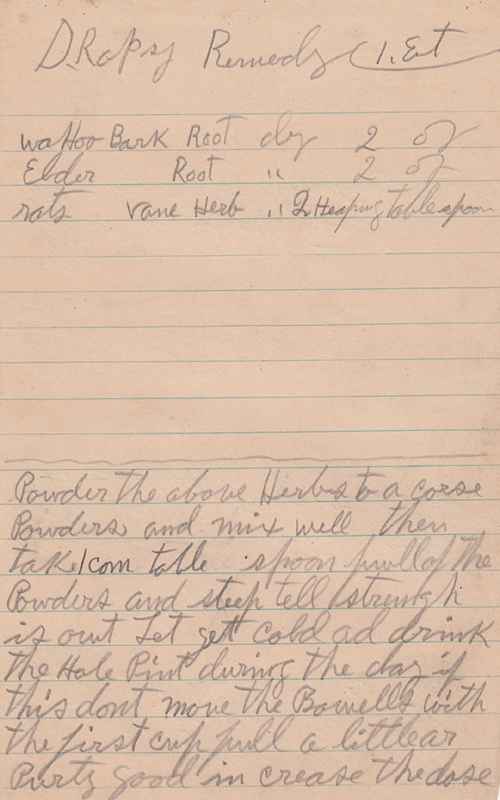 DRopsy Remedy 1. Est
waHoo Bark Root dry 2 oz
Elder Root " 2 oz
rats vane Herb " 2 Heaping tablespoon
Powder the above Herbs to a corse
Powders and mix well then
take 1 com table spoon full of the
Powders and steep tell strength
is out Let gett cold ad drink
the Hole Pint during the day if
this dont move the Bowells with
the first cup full a littlear
Purty good in crease the dose